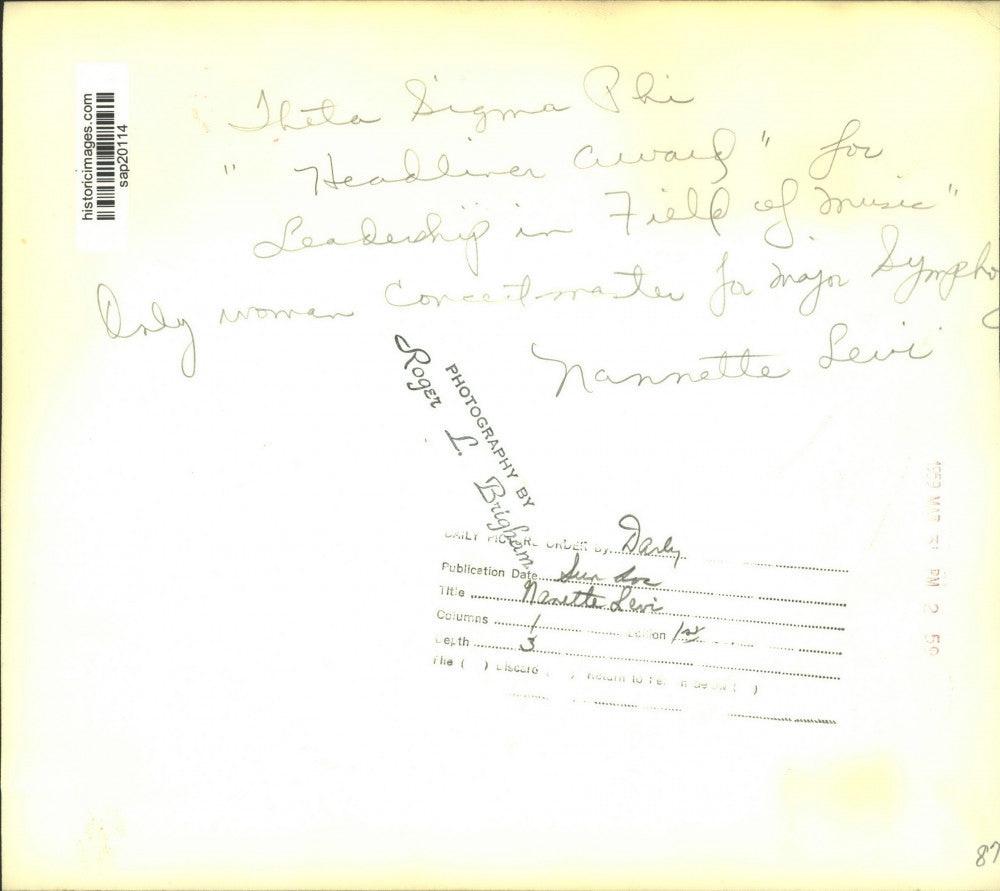 historicimages.com
sap20114
Theta Sigma Phi
" Headliner award" for
Leadership in Field of music"
Only woman Concertmaster for major Sympho
Nannette Levi
PHOTOGRAPHY BY
Roger L. Brigham
DAILY PICTURE ORDER By Darly
Publication Date Sun Soc
Title Nanette Levi
Columns 1 Edition 1st
Depth 3
File ( ) Discard ( ) Return to Person Below ( )
MAR 31 PM 2 59
87